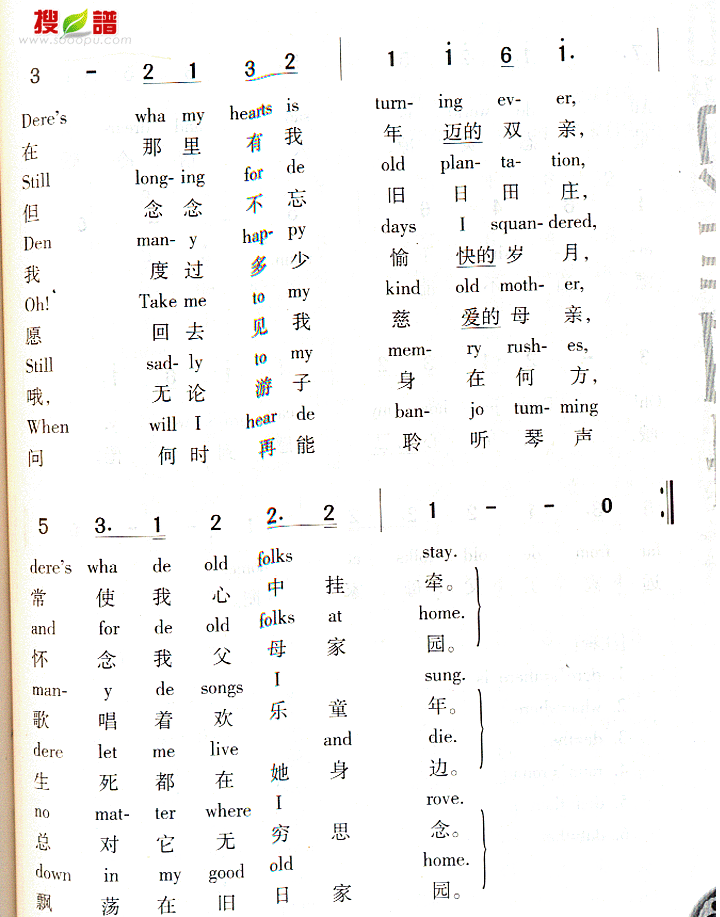 搜谱
www.sooopu.com
3 - 2 1 3 2 | 1 i 6 i. |
Dere's wha my hearts is turn- ing ev- er,
在 那 里 有 我 年 迈的 双 亲,
Still long- ing for de old plan- ta- tion,
但 念 念 不 忘 旧 日 田 庄,
Den man- y hap- py days I squan- dered,
我 度 过 多 少 愉 快的 岁 月,
Oh! Take me to my kind old moth- er,
愿 回 去 见 我 慈 爱的 母 亲,
Still sad- ly to my mem- ry rush- es,
哦, 无 论 游 子 身 在 何 方,
When will I hear de ban- jo tum- ming
问 何 时 再 能 聆 听 琴 声
5 3. 1 2 2. 2 | 1 - - 0 :‖
dere's wha de old folks stay.
常 使 我 心 中 挂 牵。
and for de old folks at home.
怀 念 我 父 母 家 园。
man- y de songs I sung.
歌 唱 着 欢 乐 童 年。
dere let me live and die.
生 死 都 在 她 身 边。
no mat- ter where I rove.
总 对 它 无 穷 思 念。
down in my good old home.
飘 荡 在 旧 日 家 园。